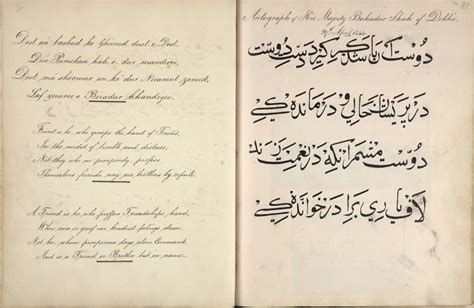 Dost an bashud ke Gheerud dust i Dost,
Dur Pureshan hali o dur mandegee,
Dost mu shoomur an ke dur Niaamut zuneed,
Laf yaaree o Biradur khandegee.
Friend is he, who grasps the hand of Friend,
In the midst of trouble and distress,
Not they who in prosperity, profess
Themselves friends, nay as, brothers by repute.
A Friend is he, who proffers Friendships, hand,
When woe or grief our kindred feelings claim
Not he, whom prosperous days alone Command,
And is a Friend or Brother but in name.
Autograph of His Majesty Bahadur Shah of Dehlie.
April
دوست آن باشد که گیرد دست دوست
در پریشان حالی و درماندگی
دوست مشمر آنکه در نعمت زند
لاف یاری برادر خواندگی